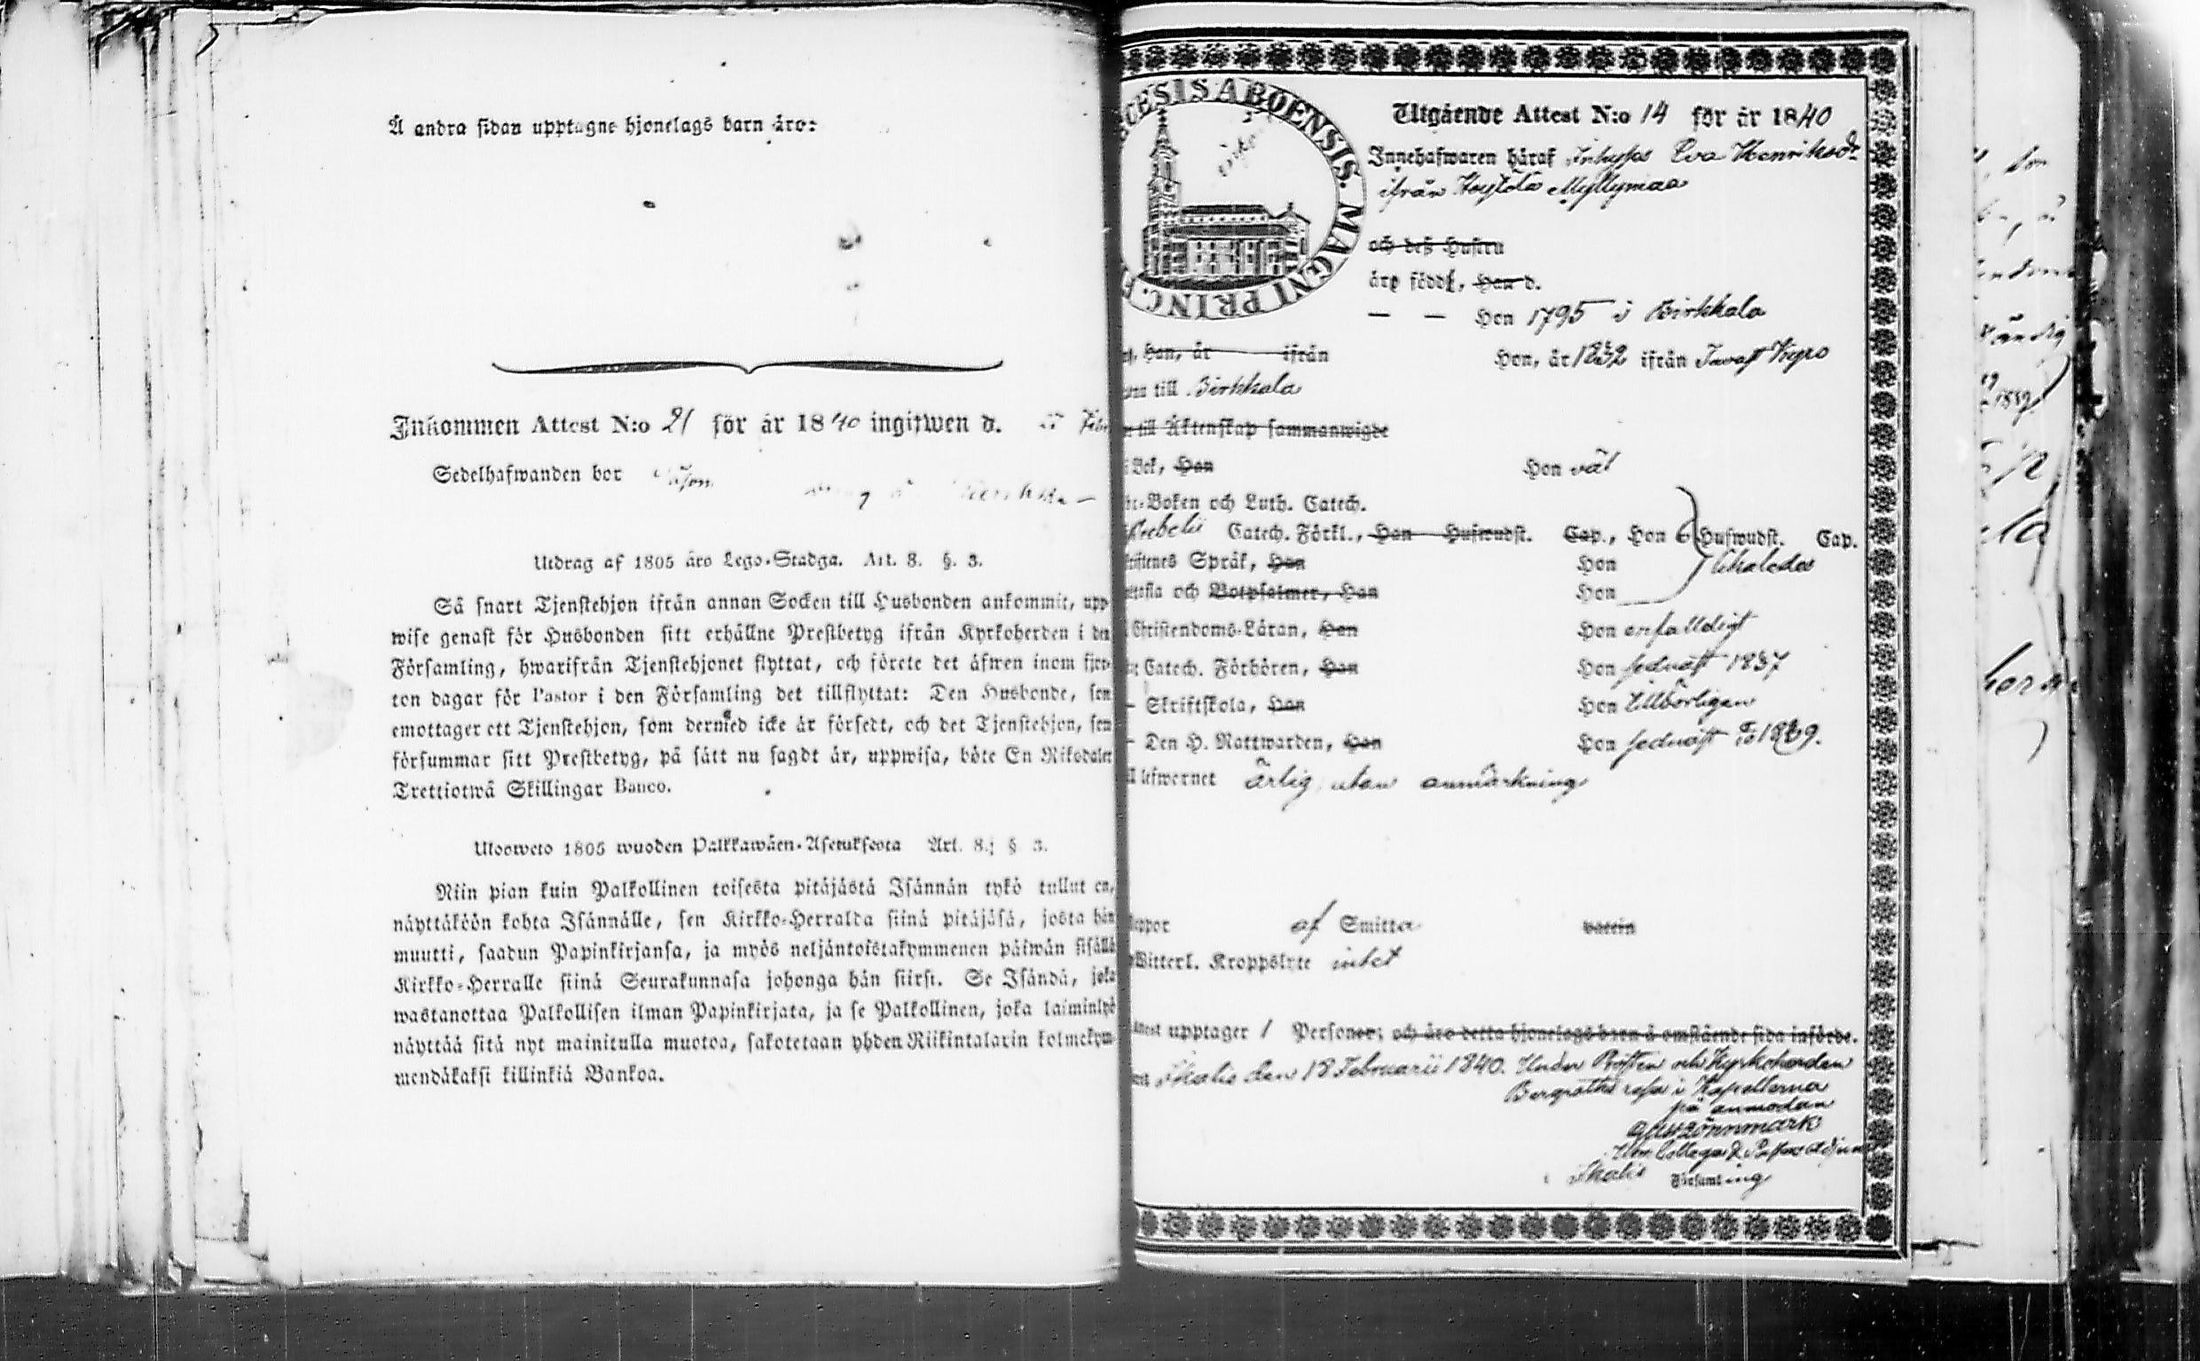 Å andra sidan upptagne hjonelags barn äro:
Inkommen Attest N:o 21 för år 1840 ingifwen d.
Sedelhafwanden bor
Utdrag af 1805 års Lego-Stadga. Art. 8. §. 3.
Så snart Tjenstehjon ifrån annan Socken till Husbonden ankommit, upp-
wise genast för Husbonden sitt erhållne Prestbetyg ifrån Kyrkoherden i den
Församling, hwarifrån Tjenstehjonet flyttat, och förete det äfwen inom fjor-
ton dagar för Pastor i den Församling det tillflyttat: Den Husbonde, som
emottager ett Tjenstehjon, som dermed icke är försedt, och det Tjenstehjon, som
försummar sitt Prestbetyg, på sätt nu sagdt är, uppwisa, böte En Riksdaler
Trettiotwå Skillingar Banco.
Ulosweto 1805 wuoden Palkkawäen-Asetuksesta Art. 8.; § 3.
Niin pian kuin Palkollinen toisesta pitäjästä Isännän tykö tullut on,
näyttäköön kohta Isännälle, sen Kirkko-Herralda siinä pitäjäsä, josta hän
muutti, saadun Papinkirjansa, ja myös neljäntoistakymmenen päiwän sisällä
Kirkko-Herralle siinä Seurakunnasa johonga hän siirsi. Se Isändä, joka
wastanottaa Palkollisen ilman Papinkirjata, ja se Palkollinen, joka laiminlyö
näyttää sitä nyt mainitulla muotoa, sakotetaan yhden Riikintalarin kolmekym-
mendäkaksi killinkiä Bankoa.
ŒCESIS ABOENSIS. MAGNI PRINC. F
Utgående Attest N:o 14 för år 1840
Innehafwaren häraf Inhyses Eva Henriksdr
ifrån Heytölä Myllymaa
och deß Hustru
äro född, Han d.
— — Hon 1795 i Birkkala
Han, år ifrån Hon, år 1832 ifrån Tavast Kyro
till Birkkala
till Äktenskap sammanwigde
Bok, Han Hon väl
Boken och Luth. Catech.
Catech. Förkl., Han Hufwudst. Cap., Hon 6 Hufwudst. Cap.
Språk, Han Hon Skaledes
och Botpsalmer, Han Hon
Christendoms-Läran, Han Hon enfalldigt
Catech. Förhören, Han Hon sednast 1837
- Skriftskola, Han Hon tillbörligen
- Den H. Nattwarden, Han Hon sednast 1839.
lefwernet ärlig, utan anmärkning
af Smitta
Witterl. Kroppslyte intet
upptager 1 Personer; och äro detta hjonelags barn å omstående sida införde.
Ikalis den 18 Februarii 1840. Under Prosten och Kyrkoherden
Bergroths resa i Kapellerna
på anmodan
Ikalis Församling